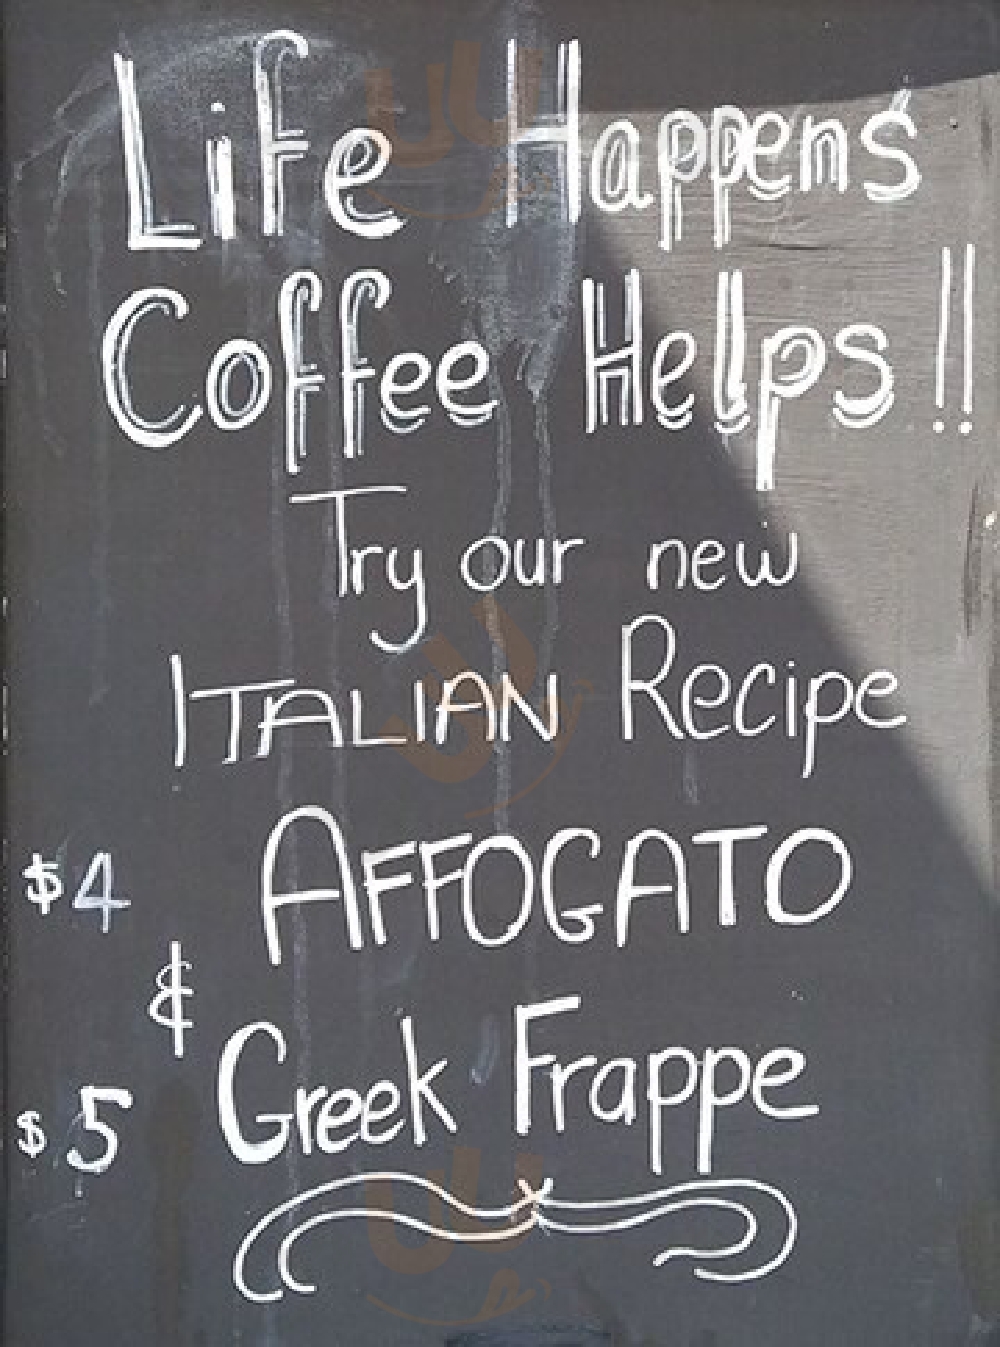 Life Happens
Coffee Helps!!
Try our new
ITALIAN Recipe
$4 AFFOGATO
&
$5 Greek Frappe